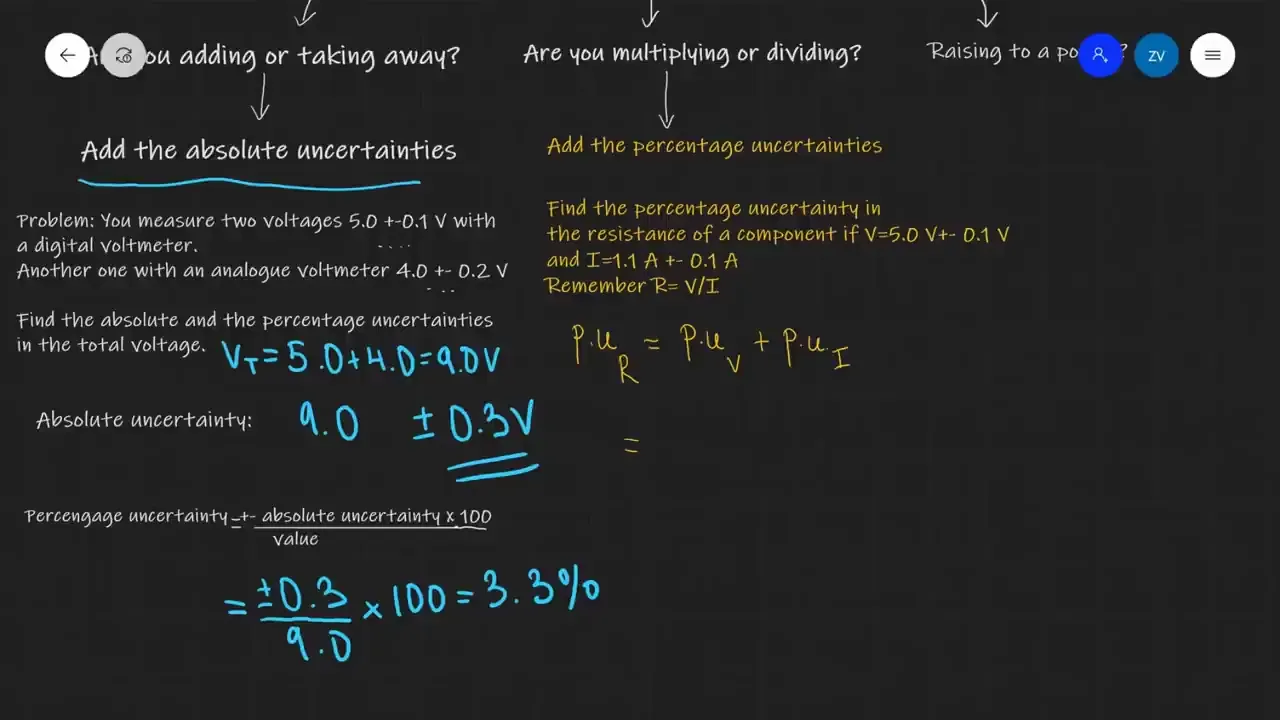 ou adding or taking away?
Are you multiplying or dividing?
Raising to a po ?
ZV
Add the absolute uncertainties
Problem: You measure two voltages 5.0 +-0.1 V with
a digital voltmeter.
Another one with an analogue voltmeter 4.0 +- 0.2 V
Find the absolute and the percentage uncertainties
in the total voltage.
V_T = 5.0 + 4.0 = 9.0 V
Absolute uncertainty: 9.0 ± 0.3 V
Percengage uncertainty = +- absolute uncertainty x 100
value
= ± 0.3 / 9.0 × 100 = 3.3%
Add the percentage uncertainties
Find the percentage uncertainty in
the resistance of a component if V=5.0 V+- 0.1 V
and I=1.1 A +- 0.1 A
Remember R= V/I
p.u_R = p.u_V + p.u_I
=